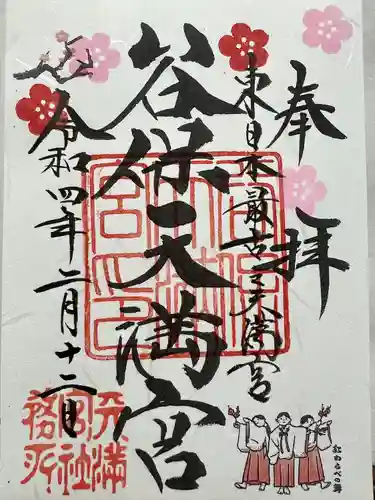 奉拝
東日本最古之天満宮
谷保天満宮
令和四年二月十二日
天満
宮社
務所
紅わらべの舞